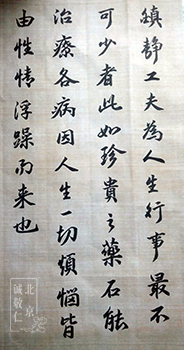 鎮靜工夫為人生行事最不
可少者此如珍貴之藥石能
治療各病因人生一切煩惱皆
由性情浮躁而来也
北京
誠敬仁